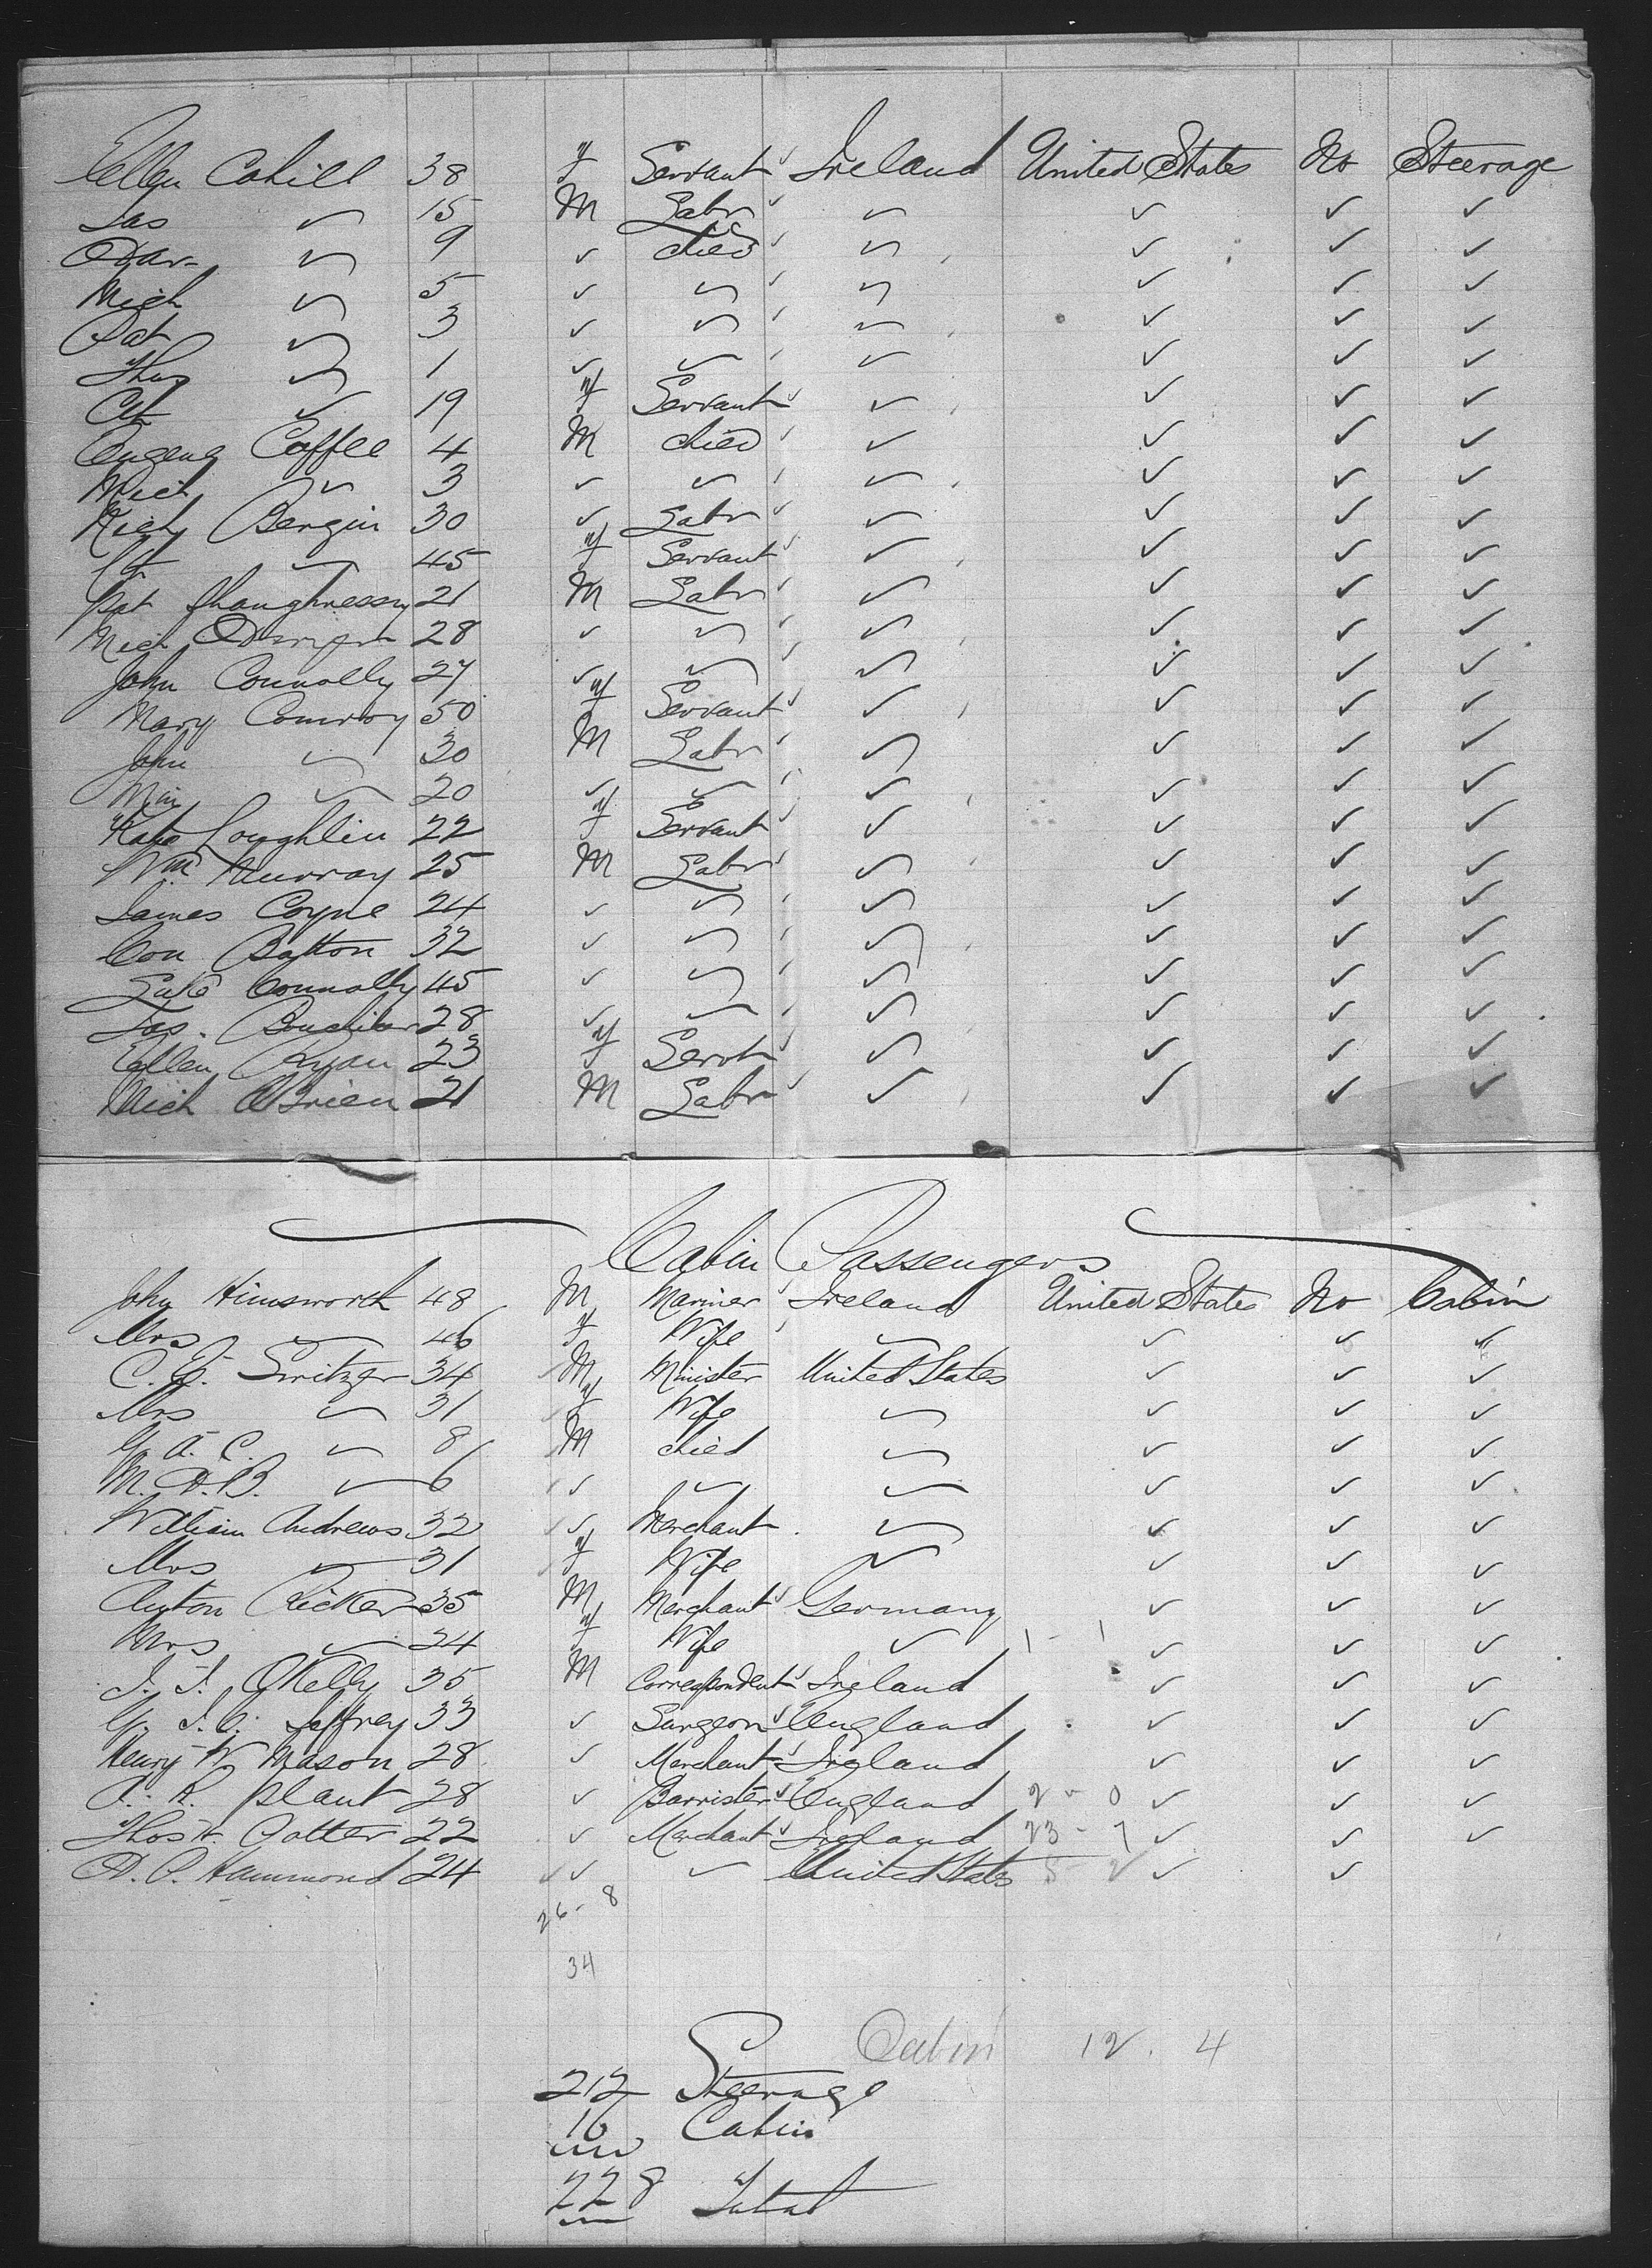 Ellen Cahill 38 f Servant ✓ Ireland United States No Steerage
Jas ✓ 15 M Labr ✓ ✓ ✓ ✓ ✓
9 ✓ child ✓ ✓ ✓ ✓ ✓
Mich ✓ 5 ✓ ✓ ✓ ✓ ✓ ✓
Pat ✓ 3 ✓ ✓ ✓ ✓ ✓ ✓
Thos ✓ 1 ✓ ✓ ✓ ✓ ✓ ✓
Cth ✓ 19 f Servant ✓ ✓ ✓ ✓ ✓
Eugene Coffee 4 M child ✓ ✓ ✓ ✓
Mich ✓ 3 ✓ ✓ ✓ ✓ ✓ ✓
Bergin 30 ✓ Labr ✓ ✓ ✓ ✓ ✓
✓ 45 f Servant ✓ ✓ ✓ ✓ ✓
Pat Shaughnessy 21 M Labr ✓ ✓ ✓ ✓ ✓
Mich 28 ✓ ✓ ✓ ✓ ✓ ✓
John Connolly 27 ✓ ✓ ✓ ✓ ✓ ✓
Mary Conroy 50 f Servant ✓ ✓ ✓ ✓ ✓
John ✓ 30 M Labr ✓ ✓ ✓ ✓
✓ 20 ✓ ✓ ✓ ✓ ✓ ✓
Kate Loughlin 22 f Servant ✓ ✓ ✓ ✓
Wm Murray 25 M Labr ✓ ✓ ✓ ✓ ✓
James Coyne 24 ✓ ✓ ✓ ✓ ✓ ✓
Con Batton 32 ✓ ✓ ✓ ✓ ✓ ✓
Luke Connolly 45 ✓ ✓ ✓ ✓ ✓ ✓
Jas. 28 ✓ ✓ ✓ ✓ ✓ ✓
Ellen Ryan 23 f Servt ✓ ✓ ✓ ✓ ✓
Mich OBrien 21 M Labr ✓ ✓ ✓ ✓ ✓
Cabin Passengers
John Himsworth 48 M Mariner Ireland United States No Cabin
Mrs ✓ 46 f Wife ✓ ✓ ✓ ✓
C. E. Switzer 34 M Minister United States ✓ ✓ ✓
Mrs ✓ 31 f Wife ✓ ✓ ✓ ✓
G. A. C. ✓ 8 M child ✓ ✓ ✓ ✓
M. A. B. ✓ 6 ✓ ✓ ✓ ✓ ✓ ✓
William Andrews 32 ✓ Merchant ✓ ✓ ✓ ✓
Mrs ✓ 31 f Wife ✓ ✓ ✓ ✓
Anton Ricker 35 M Merchant ✓ Germany ✓ ✓ ✓
Mrs ✓ 24 f Wife ✓ 1 - 1 ✓ ✓ ✓
J. J. OKelly 35 M Correspondent ✓ Ireland ✓ ✓ ✓
G. J. C. Jeffrey 33 ✓ Surgeon ✓ England ✓ ✓ ✓
Henry W Mason 28 ✓ Merchant ✓ Ireland ✓ ✓ ✓
A. R. Plant 28 ✓ Barrister ✓ England 2 - 0 ✓ ✓ ✓
Thos H. Gotter 22 ✓ Merchant ✓ Ireland 23 - 7 ✓ ✓ ✓
A. P. Hammond 24 ✓ ✓ ✓ United States ✓ ✓
26 - 8
34
Cabin 12. 4
212 Steerage
16 Cabin
228 Total